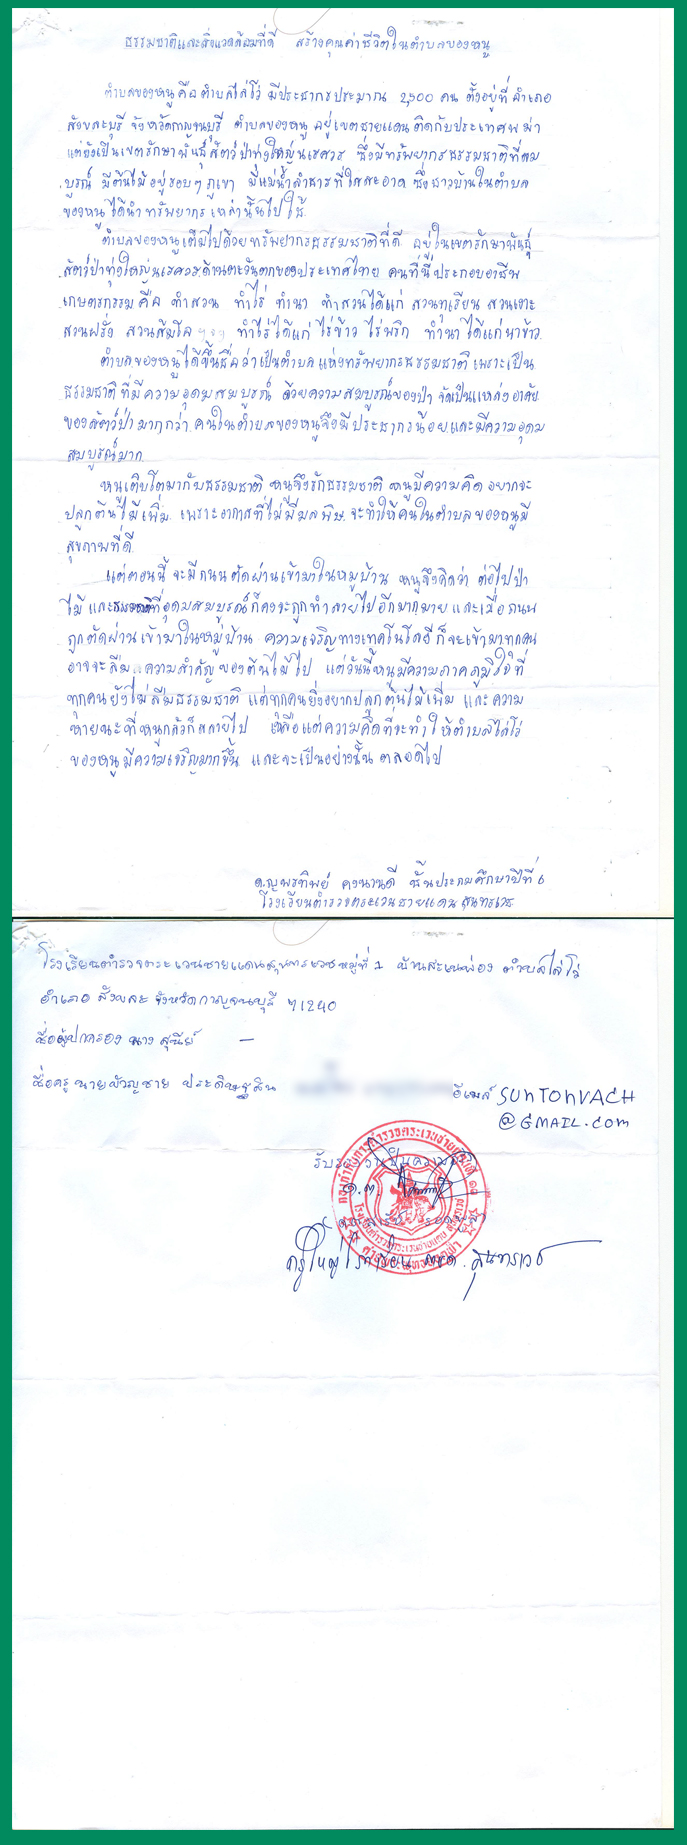 ธรรมชาติและสิ่งแวดล้อมที่ดี สร้างคุณค่าชีวิตในตำบลของหนู
ตำบลของหนูคือตำบลไล่โว่ มีประชากรประมาณ 2,500 คน ตั้งอยู่ที่ อำเภอ
สังขละบุรี จังหวัดกาญจนบุรี ตำบลของหนู อยู่เขตชายแดนติดกับประเทศพม่า
แต่ยังเป็นเขตรักษาพันธุ์สัตว์ป่าทุ่งใหญ่นเรศวร ซึ่งมีทรัพยากรธรรมชาติที่สม
บูรณ์ มีต้นไม้อยู่รอบๆ ภูเขา มีแม่น้ำลำธารที่ใสสะอาด ซึ่งชาวบ้านในตำบล
ของหนูได้นำทรัพยากรเหล่านั้นไปใช้
ตำบลของหนูเต็มไปด้วยทรัพยากรธรรมชาติที่ดี อยู่ในเขตรักษาพันธุ์
สัตว์ป่าทุ่งใหญ่นเรศวรด้านตะวันตกของประเทศไทย คนที่นี่ประกอบอาชีพ
เกษตรกรรม คือ ทำสวน ทำไร่ ทำนา ทำสวนได้แก่ สวนทุเรียน สวนเงาะ
สวนฝรั่ง สวนส้มโอ ฯลฯ ทำไร่ได้แก่ ไร่ข้าว ไร่พริก ทำนาได้แก่นาข้าว
ตำบลของหนูได้ขึ้นชื่อว่าเป็นตำบลแห่งทรัพยากรธรรมชาติ เพราะเป็น
ธรรมชาติที่มีความอุดมสมบูรณ์ ด้วยความสมบูรณ์ของป่า จึงเป็นแหล่งอาศัย
ของสัตว์ป่ามากกว่า คนในตำบลของหนูจึงมีประชากรน้อยและมีความอุดม
สมบูรณ์มาก
หนูเติบโตมากับธรรมชาติ หนูจึงรักธรรมชาติ หนูมีความคิดอยากจะ
ปลูกต้นไม้เพิ่ม เพราะอากาศที่ไม่มีมลพิษจะทำให้คนในตำบลของหนูมี
สุขภาพที่ดี
แต่ตอนนี้ จะมีถนนตัดผ่านเข้ามาในหมู่บ้าน หนูจึงคิดว่า ต่อไปป่า
ไม้ และที่อุดมสมบูรณ์ก็คงจะถูกทำลายไปอีกมากมาย และเมื่อถนน
ถูกตัดผ่านเข้ามาในหมู่บ้าน ความเจริญทางเทคโนโลยีก็จะเข้ามาทุกคน
อาจจะลืมความสำคัญของต้นไม้ไป แต่วันนี้หนูมีความภาคภูมิใจที่
ทุกคนยังไม่ลืมธรรมชาติ แต่ทุกคนยิ่งอยากปลูกต้นไม้เพิ่ม และความ
หายนะที่หนูกลัวก็สลายไป เหลือแต่ความคิดที่จะทำให้ตำบลไล่โว่
ของหนูมีความเจริญมากขึ้น และจะเป็นอย่างนั้นตลอดไป
ด.ญ.พรทิพย์ คงนานดี ชั้นประถมศึกษาปีที่ 6
โรงเรียนตำรวจตระเวนชายแดนสุนทรเวช
โรงเรียนตำรวจตระเวนชายแดนสุนทรเวช หมู่ที่ 1 บ้านสะเนพ่อง ตำบลไล่โว่
อำเภอ สังขละ จังหวัดกาญจนบุรี 71240
ชื่อผู้ปกครอง นาง สุณีย์ -
ชื่อครู นายขวัญชาย ประดิษฐศิน
อีเมล์ SUNTONVACH
@GMAIL.com
รับรองว่าเป็นความจริง
ด.ต.
ครูใหญ่โรงเรียน ตชด. สุนทรเวช